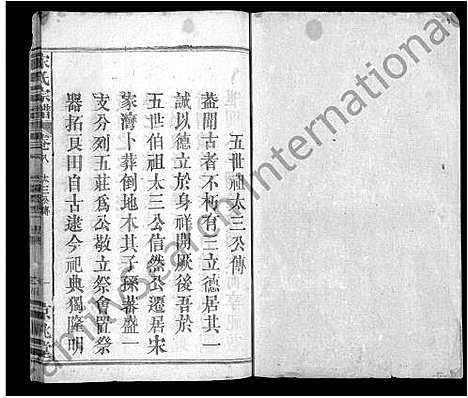 五世祖太三公傳
蓋聞古者不朽有三立德居其一
誠以德立於身祥開厥後吾於
五世伯祖太三公信然公遷居宋
家灣卜葬倒地木其子孫蕃盛一
支分列五莊爲公敬立祭會置祭
器拓良田自古逮今祀典獨隆明
宋氏宗譜
卷八
太三公傳
一
京兆堂
FamilySearch International